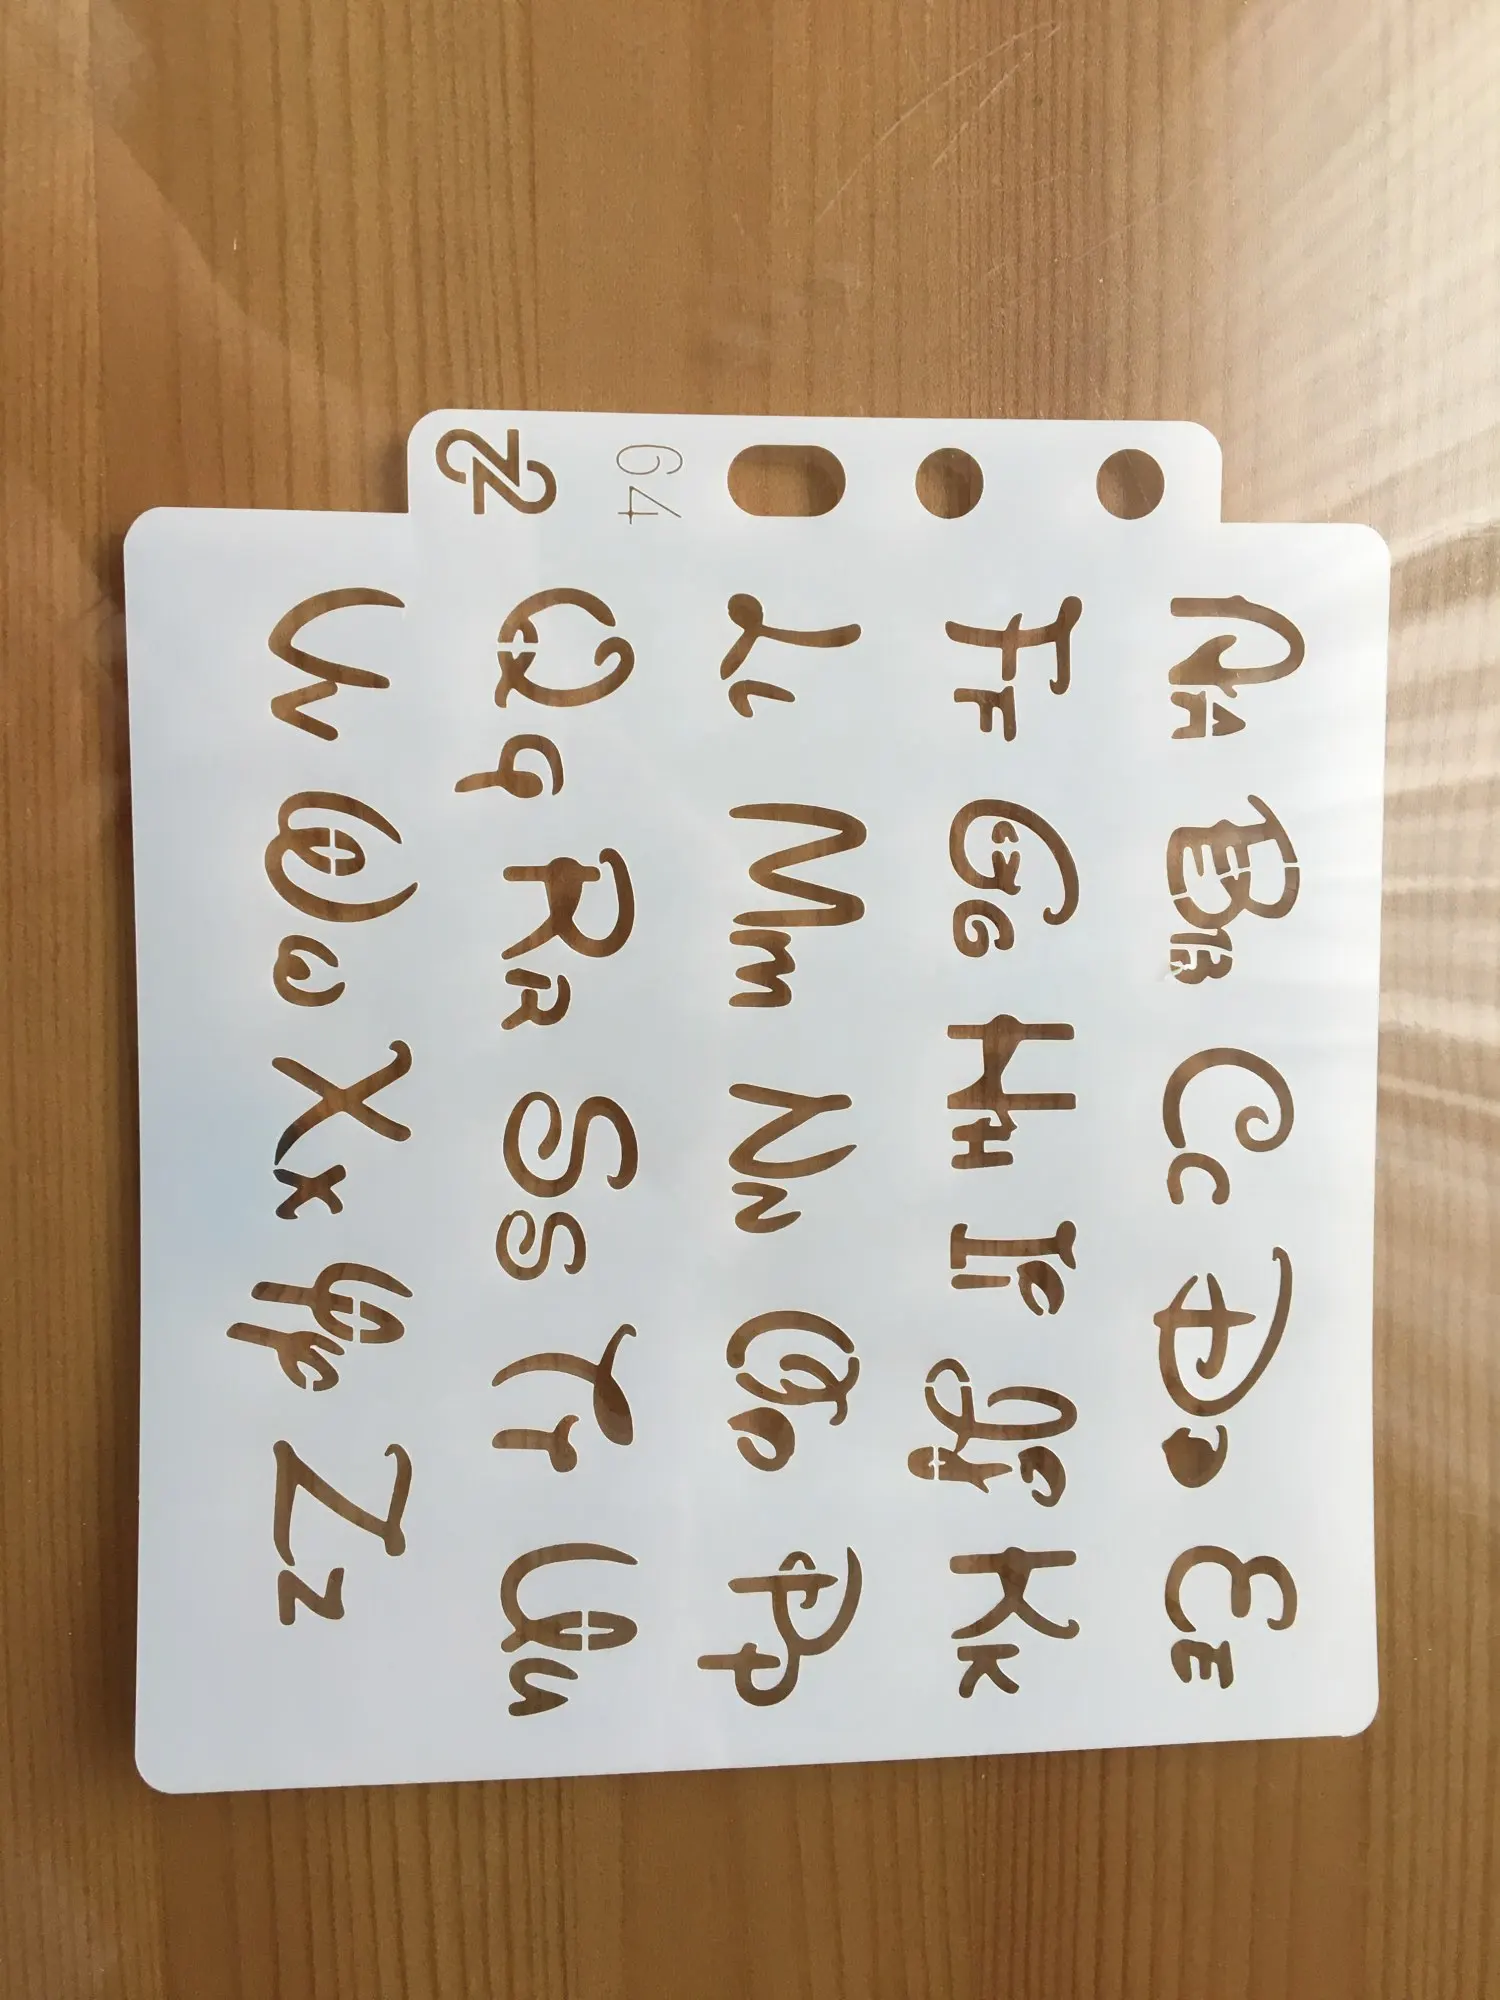 64
Aa Bb Cc Dd Ee
Ff Gg Hh Ii Jj Kk
Ll Mm Nn Oo Pp
Qq Rr Ss Tt Uu
Vv Ww Xx Yy Zz